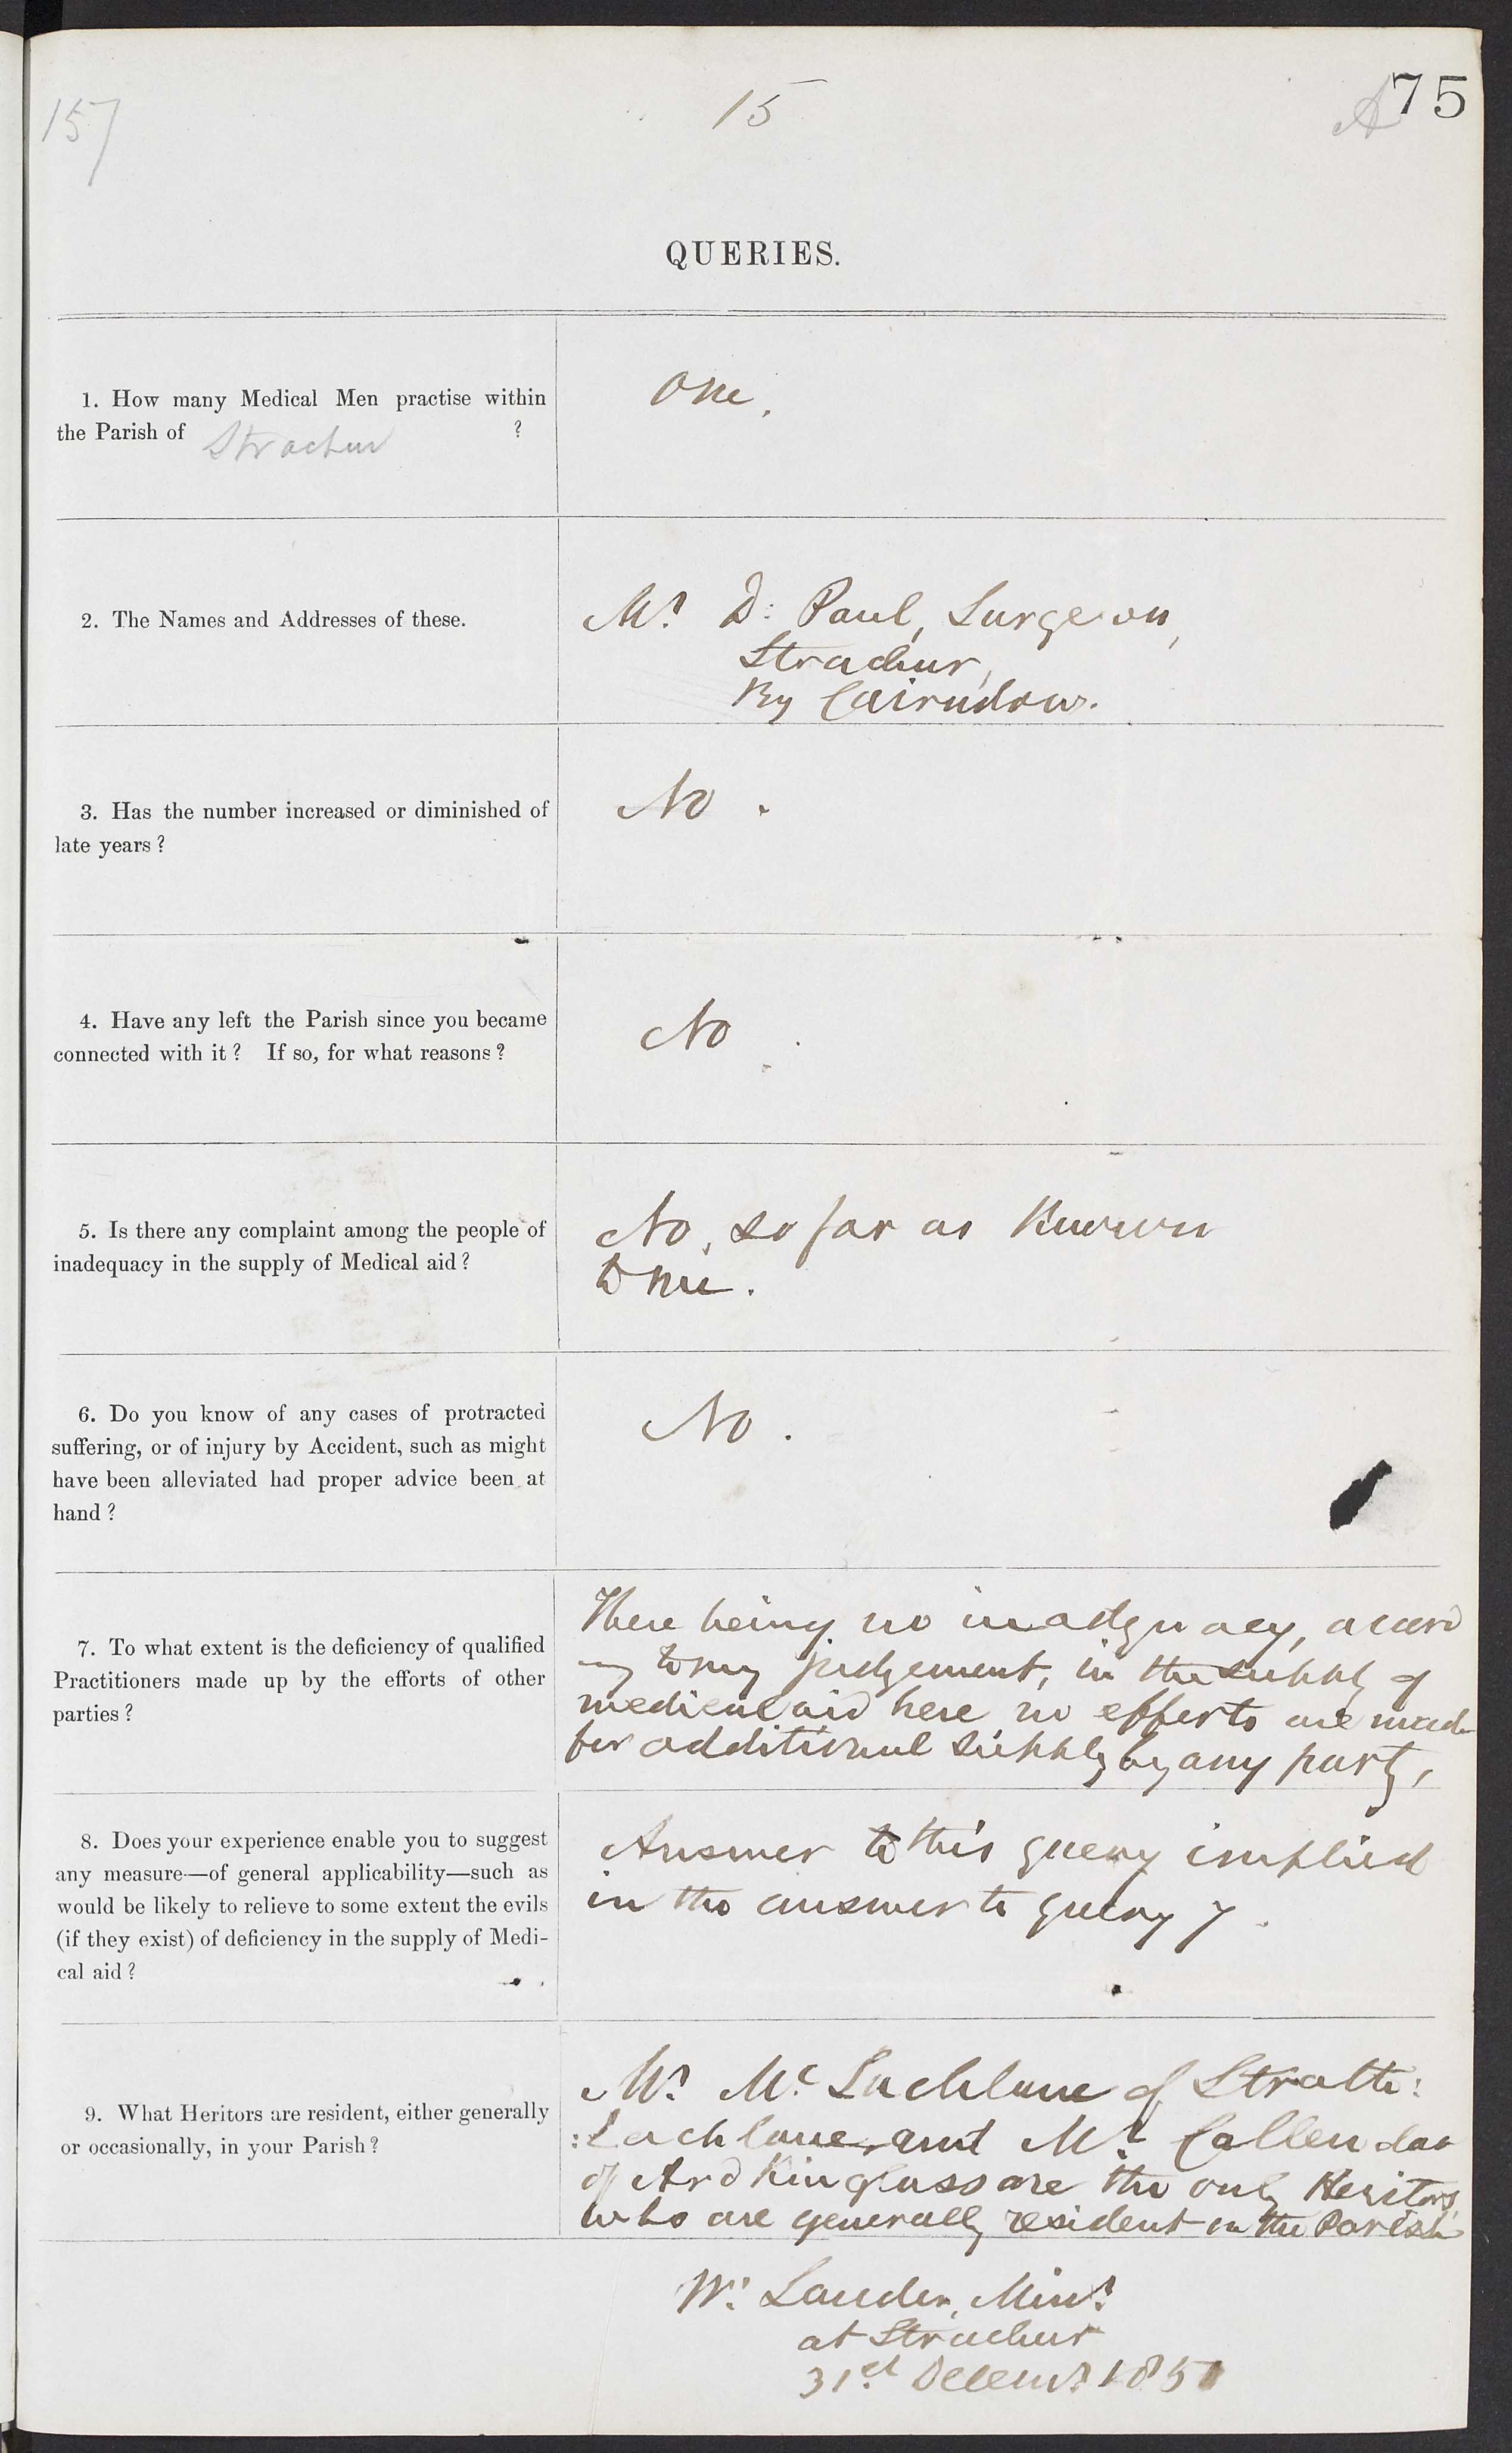 157
15
A
75
QUERIES.
1. How many Medical Men practise within
the Parish of Strachur ?
One.
2. The Names and Addresses of these.
Mr. D: Paul, Surgeon,
Strachur,
By Cairndow.
3. Has the number increased or diminished of
late years ?
No.
4. Have any left the Parish since you became
connected with it ? If so, for what reasons ?
No.
5. Is there any complaint among the people of
inadequacy in the supply of Medical aid ?
No, so far as Known
to me.
6. Do you know of any cases of protracted
suffering, or of injury by Accident, such as might
have been alleviated had proper advice been at
hand ?
No.
7. To what extent is the deficiency of qualified
Practitioners made up by the efforts of other
parties ?
There being no inadequacy, accord
ing to my judgement, in the supply of
medical aid here no efforts are made
for additional supply by any party,
8. Does your experience enable you to suggest
any measure—of general applicability—such as
would be likely to relieve to some extent the evils
(if they exist) of deficiency in the supply of Medi-
cal aid ?
Answer to this query implied
in the answer to query 7.
9. What Heritors are resident, either generally
or occasionally, in your Parish ?
Mr. Mc. Lachlane of Strath:
:Lachlane and Mr. Callendar
of ArdKinglass are the only Heritors
who are generally resident in the Parish
Wm. Lauder, Minr.
at Strachur
31st. Decemr. 1851